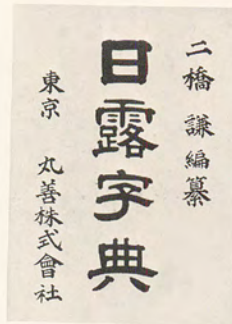 二橋 謙編纂
日露字典
東京 丸善株式會社